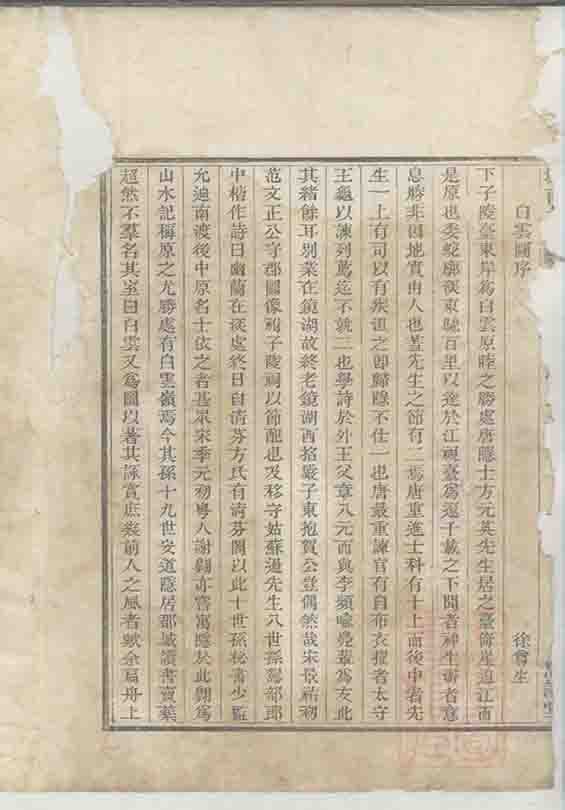 白雲圖序
徐尊生
下子陵臺東岸為白雲原睦之勝處唐隱士方元英先生居之臺髙崖迫江而
是原也委蛇廓漠東馳百里以達於江視臺為遜千載之下聞者神生者意
息勝非因地實由人也葢先生之節有二焉唐重進士科有十上而後中者先
生一上有司以有疾遺之卽歸隱不仕一也唐最重諫官有自布衣擢者太守
王龜以諫列薦迄不就二也學詩於外王父章八元而與李頻喻鳧輩為友此
其緒餘耳别業在鏡湖故終老鏡湖西招嚴子東抱賀公豈偶然哉宋景祐初
范文正公守郡圖像祠子陵祠以節配也及移守姑蘇過先生八世孫郎
中楷作詩曰幽蘭在深處終日自清芬方氏有清芬閣以此十世孫秘書少監
允迪南渡後中原名士依之者甚眾宋季元初粤人謝翺亦嘗寓隱於此翺為
山水記稱原之尤勝處有白雲嶺焉今其孫十九世安道隱居郡城讀書賣藥
超然不羣名其室曰白雲又為圖以著其詠賞庶幾前人之風者歟余扁舟上